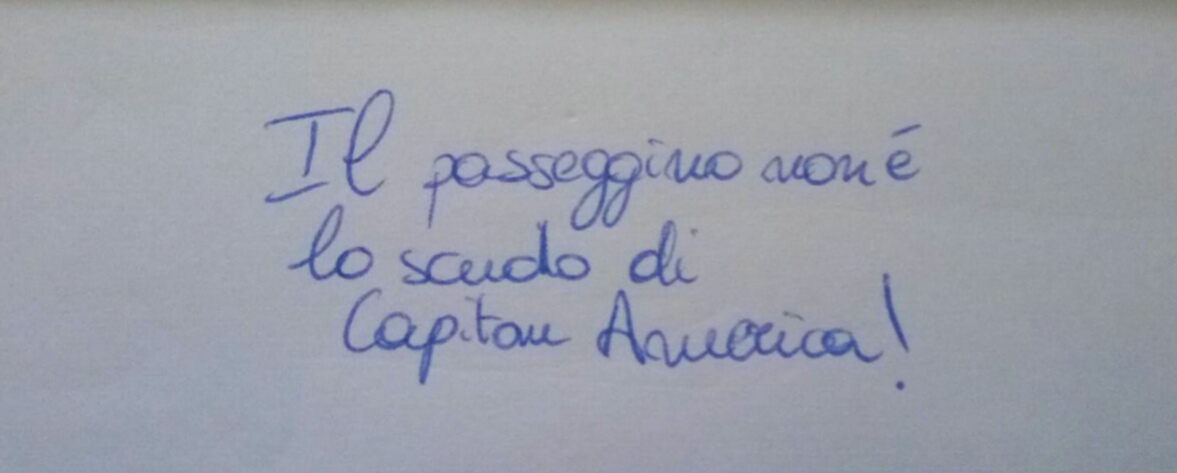 Il passeggino non é
lo scudo di
Capitan America!